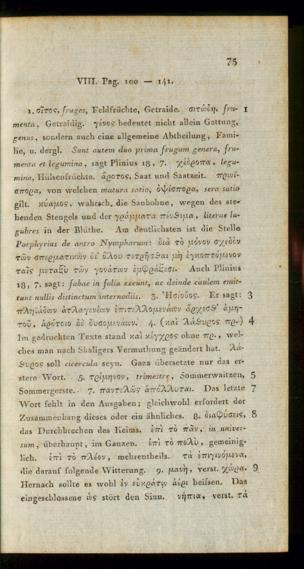 75
VIII. Pag. 100 — 141.
1. σῖτος, fruges, Feldfrüchte, Getraide. σιτώδη, fru- 1
menta, Getraidig. γένος bedeutet nicht allein Gattung,
genus, sondern auch eine allgemeine Abtheilung, Fami-
lie, u. dergl. Sunt autem duo prima frugum genera, fru-
menta et legumina, sagt Plinius 18, 7. χέδροπα, legu-
mina, Hülsenfrüchte. ἄροτος, Saat und Saatzeit. πρωΐ-
σπορα, von welchen matura satio, ὀψίσπορα, sera satio
gilt. κύαμος, wahrsch. die Saubohne, wegen des ste-
henden Stengels und der γράμματα πένθιμα, literae lu-
gubres in der Blüthe. Am deutlichsten ist die Stelle
Porphyrius de antro Nympharum: διὰ τὸ μόνον σχεδὸν
τῶν σπερματικῶν δι' ὅλου τετρῆσθαι μὴ ἐγκοπτόμενον
ταῖς μεταξὺ τῶν γονάτων ἐμφράξεσι. Auch Plinius
18, 7. sagt: fabae in folia exeunt, ac deinde caulem emit-
tunt nullis distinctum internodiis. 3. Ἡσίοδος. Er sagt: 3
πληϊάδων ἀτλαγενέων ἐπιτελλομενάων ἄρχεσθ' ἀμη-
τοῦ, ἀρότοιο δὲ δυσομενάων. 4. (καὶ λάθυρος πρ.) 4
Im gedruckten Texte stand καὶ κέγχρος ohne πρ., wel-
ches man nach Skaligers Vermuthung geändert hat. λά-
θυρος soll cicercula seyn. Gaza übersetzte nur das er-
stere Wort. 5. τρίμηνον, trimestre, Sommerwaitzen, 5
Sommergerste. 7. παντελῶς ἀπόλλυται. Das letzte 7
Wort fehlt in den Ausgaben; gleichwohl erfordert der
Zusammenhang dieses oder ein ähnliches. 8. διαφύσεις, 8
das Durchbrechen des Keims. ἐπὶ τὸ πᾶν, in univer-
sum, überhaupt, im Ganzen. ἐπὶ τὸ πολὺ, gemeinig-
lich. ἐπὶ τὸ πλέον, mehrentheils. τὰ ἐπιγινόμενα,
die darauf folgende Witterung. 9. μανὴ, verst. χώρα. 9
Hernach sollte es wohl ἐν εὐκράτῳ ἀέρι heissen. Das
eingeschlossene ὡς stört den Sinn. νήπια, verst. τὰ